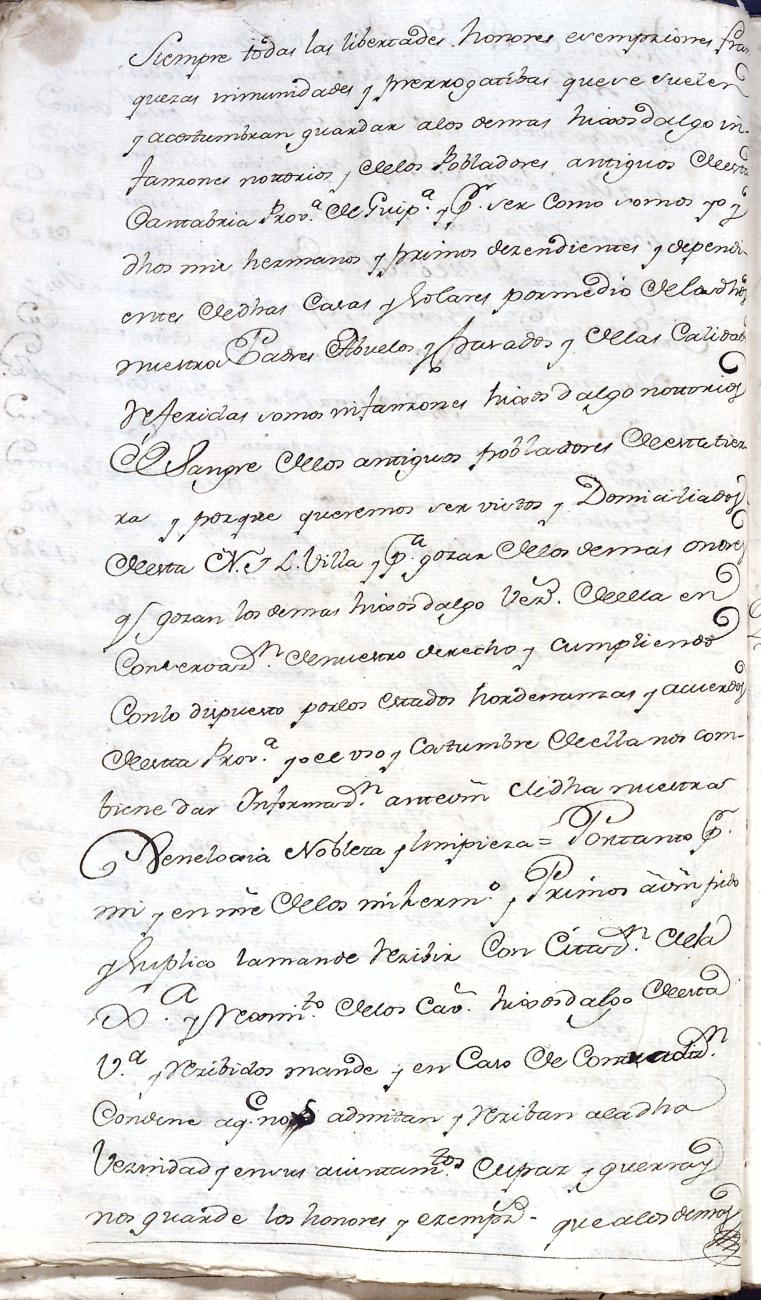 Siempre todas las libertades honores exempziones fran
quezas inmunidades y prerrogatibas que se suelen
y acostumbran guardar a los demas hixosdalgo in-
fanzones nottorios y de los Pobladores antiguos de esta
Cantabria Prov.ª de Guip.ª y P.r ser como somos yo y
dhos mis hermanos y primos dezendientes y dependi-
entes de dhas Casas y Solares por medio de los dhos
nuestros Padres Abuelos y Pasados y de las Calidades
Referidas somos infanzones hixosdalgo nottorios
de Sangre de los antiguos pobladores de esta tier-
ra y porque queremos ser vistos y Domiciliados
de esta N. y L. Villa y p.ª gozar de los demas onores
q gozan los demas hixosdalgo Vez.s de ella en
Conservaz.n de nuestro derecho y cumpliendo
Con lo dispuesto por los estados hordenanzas y acuerdos
de esta Prov.ª y de el uso y Costumbre de ella nos com-
biene dar Informaz.n ante vm de dha nuestra
Geneloxia Nobleza y limpieza = Por tanto P.r
mi y en nre de los mi herm.º y Primos a vm pido
y Suplico la mande Rezibir Con Cittaz.n de la
y Rexim.to de los Cav.s hixosdalgo de esta
V.ª y Rezibidos mande y en Caso de Contradiz.n
Condene a q.e nos admitan y Reziban a la dha
Vezindad y en sus aiuntam.tos de paz y guerra y
nos guarde los honores y exempz.s que a los demas